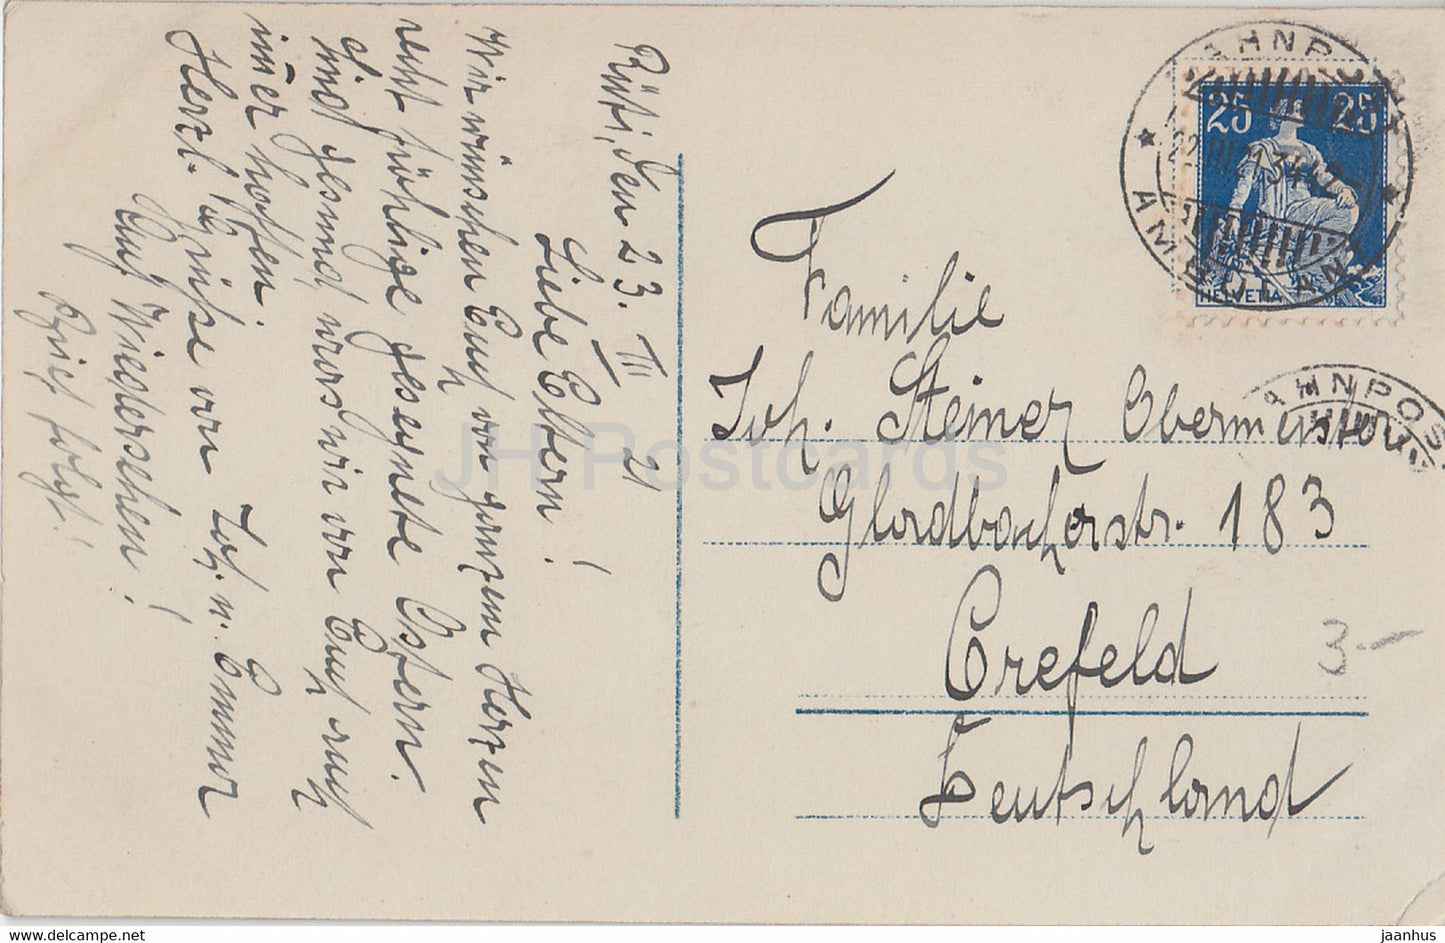 Rüti, den 23. III 21
Liebe Eltern!
Wir wünschen Euch von ganzem Herzen
recht fröhliche gesegnete Ostern.
Sind gesund was wir von Euch auch
im̅er hoffen.
Herzl. Grüsse von Joh. u. Emma
Auf Wiedersehen!
Brief folgt!
Familie
Joh. Steiner
Gladbacherstr. 183
Crefeld
Deutschland
25 25
HELVETIA
BAHNPOST
AMBULANT
BAHNPOST
3-
JH Postcards
www.delcampe.net
jaanhus